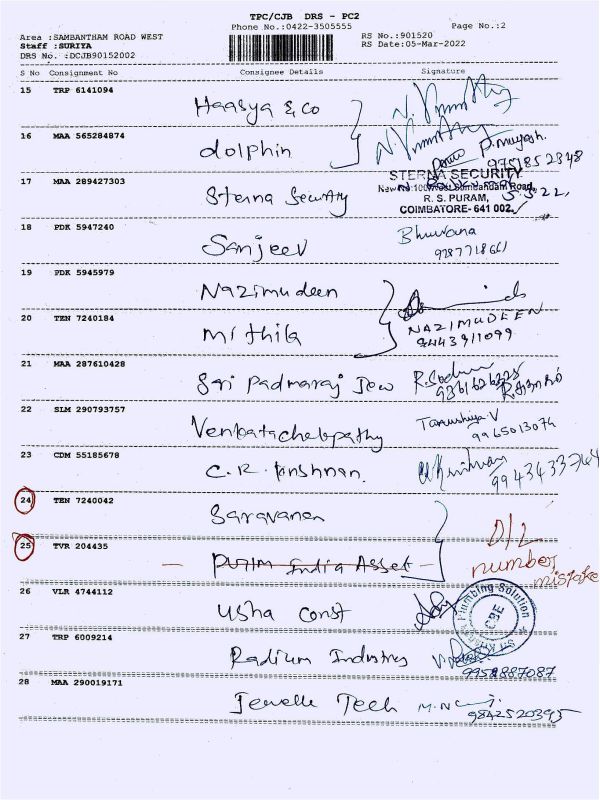 TPC/CJB DRS - PC2
Phone No.:0422-3505555
Page No.:2
Area :SAMBANTHAM ROAD WEST
RS No.:901520
Staff :SURIYA
RS Date:05-Mar-2022
DRS No. :DCJB90152002
S No Consignment No Consignee Details Signature
15 TRP 6141094
Haasya & Co
16 MAA 565284874
dolphin
STERNA SECURITY
17 MAA 289427303
Sterna Security
R. S. PURAM,
COIMBATORE- 641 002.
18 PDK 5947240
Sanjeev Bhuvana
9287718661
19 PDK 5945979
Nazimudeen
NAZIMUDEEN
20 TEN 7240184
Mithila 9443911099
21 MAA 287610428
Sri Padmaraj Jew
22 SLM 290793757
Venkatachalapathy Tanushiya.V
9965013074
23 CDM 55185678
C.R. Krishnan.
24 TEN 7240042
Saravanan D/L
25 TVR 204435
India Asset number
mistake
26 VLR 4744112
Usha Const Plumbing Solution CBE
27 TRP 6009214
Radium Industries
9958887087
28 MAA 290019171
Jewelle Tech
9842520395